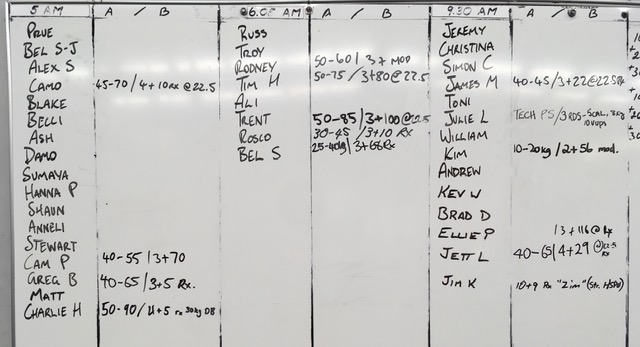 5 AM A / B 6.05 AM A / B 9.30 AM A / B
PRUE RUSS JEREMY
BEL S-J TROY CHRISTINA
ALEX S RODNEY 50-60 / 3 + MOD SIMON C
CAMO 45-70 / 4+10 RX @ 22.5 TIM H 50-75 / 3+80@22.5 JAMES M 40-45 / 3+22@22.5RX
BLAKE ALI TONI
BELLI TRENT 50-85 / 3+100@22.5 JULIE L TECH PS / 3 RDS-SCAL.
ASH ROSCO 30-45 / 3+10 RX WILLIAM
DAMO BEL S 25-40kg / 3+68RX KIM 10-20kg / 2+56 mod.
SUMAYA ANDREW
HANNA P KEV W
SHAUN BRAD D
ANNELI ELLIE P / 3+116@ RX
STEWART JETT L 40-65 / 4+29 @22.5 RX
CAM P 40-55 / 3+70
GREG B 40-65 / 3+5 RX. JIM K 10+9 RX "Zim" (Str. HSPU)
MATT
CHARLIE H 50-90 / 4+5 rx 30kg DB